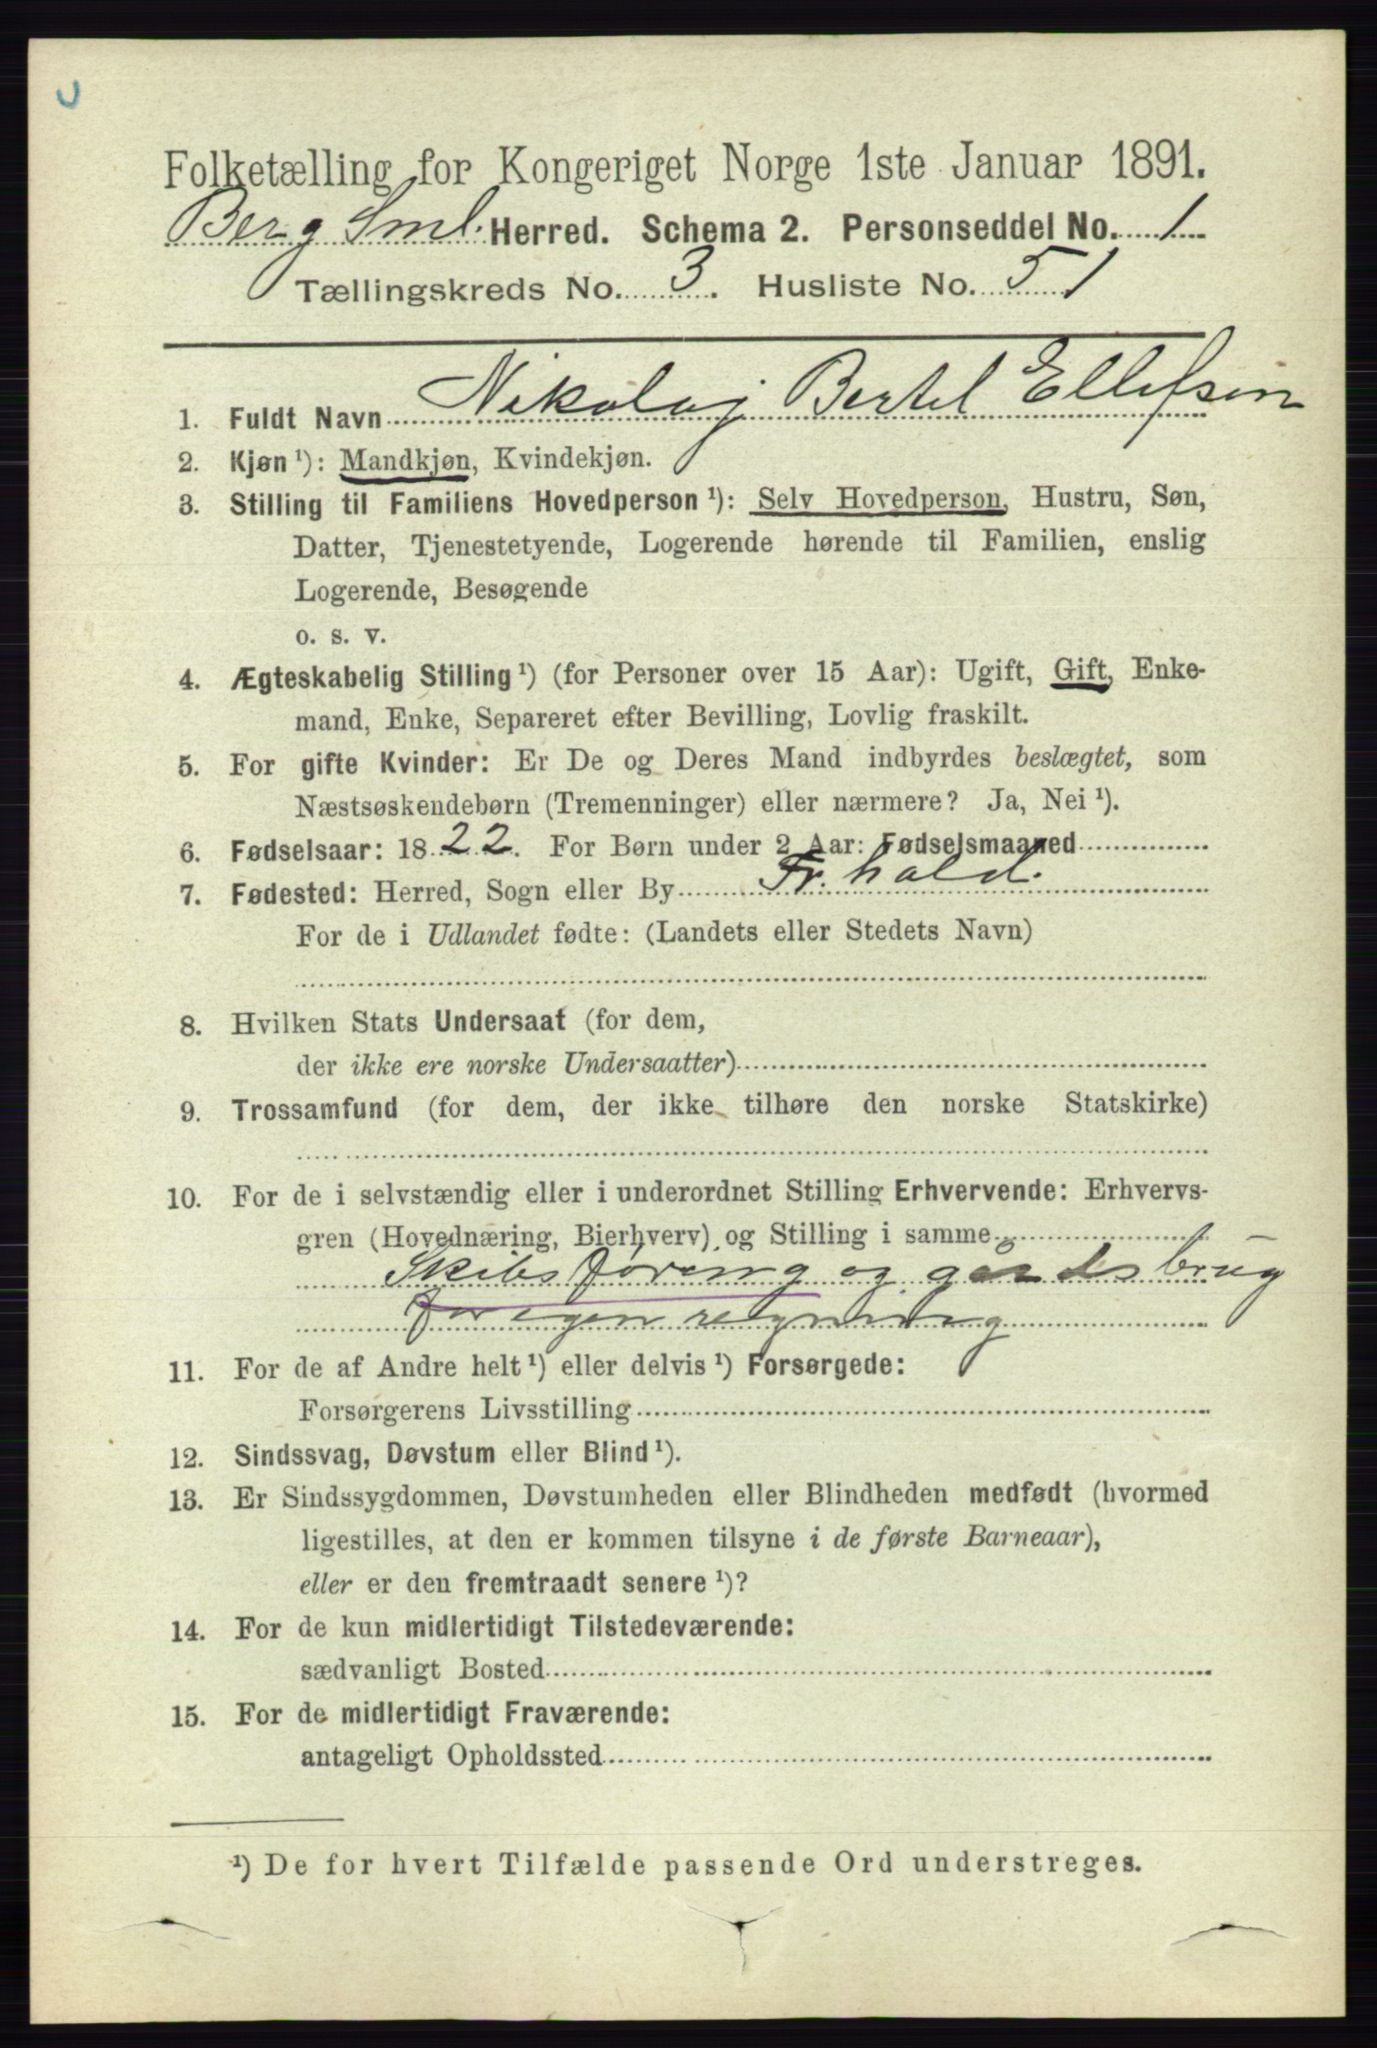 Folketælling for Kongeriget Norge 1ste Januar 1891.
Berg Sml. Herred. Schema 2. Personseddel No. 1
Tællingskreds No. 3. Husliste No. 51
1. Fuldt Navn Nikolaj Bertel Ellefsen
2. Kjøn ¹): Mandkjøn, Kvindekjøn.
3. Stilling til Familiens Hovedperson ¹): Selv Hovedperson, Hustru, Søn,
Datter, Tjenestetyende, Logerende hørende til Familien, enslig
Logerende, Besøgende
o. s. v.
4. Ægteskabelig Stilling ¹) (for Personer over 15 Aar): Ugift, Gift, Enke-
mand, Enke, Separeret efter Bevilling, Lovlig fraskilt.
5. For gifte Kvinder: Er De og Deres Mand indbyrdes beslægtet, som
Næstsøskendebørn (Tremenninger) eller nærmere? Ja, Nei ¹).
6. Fødselsaar: 1822. For Børn under 2 Aar: Fødselsmaaned
7. Fødested: Herred, Sogn eller By Fr.hald.
For de i Udlandet fødte: (Landets eller Stedets Navn)
8. Hvilken Stats Undersaat (for dem,
der ikke ere norske Undersaatter)
9. Trossamfund (for dem, der ikke tilhøre den norske Statskirke)
10. For de i selvstændig eller i underordnet Stilling Erhvervende: Erhvervs-
gren (Hovednæring, Bierhverv) og Stilling i samme
Skibsføreng og gårdsbrug
for egen regning
11. For de af Andre helt ¹) eller delvis ¹) Forsørgede:
Forsørgerens Livsstilling
12. Sindssvag, Døvstum eller Blind ¹).
13. Er Sindssygdommen, Døvstumheden eller Blindheden medfødt (hvormed
ligestilles, at den er kommen tilsyne i de første Barneaar),
eller er den fremtraadt senere ¹)?
14. For de kun midlertidigt Tilstedeværende:
sædvanligt Bosted
15. For de midlertidigt Fraværende:
antageligt Opholdssted
¹) De for hvert Tilfælde passende Ord understreges.